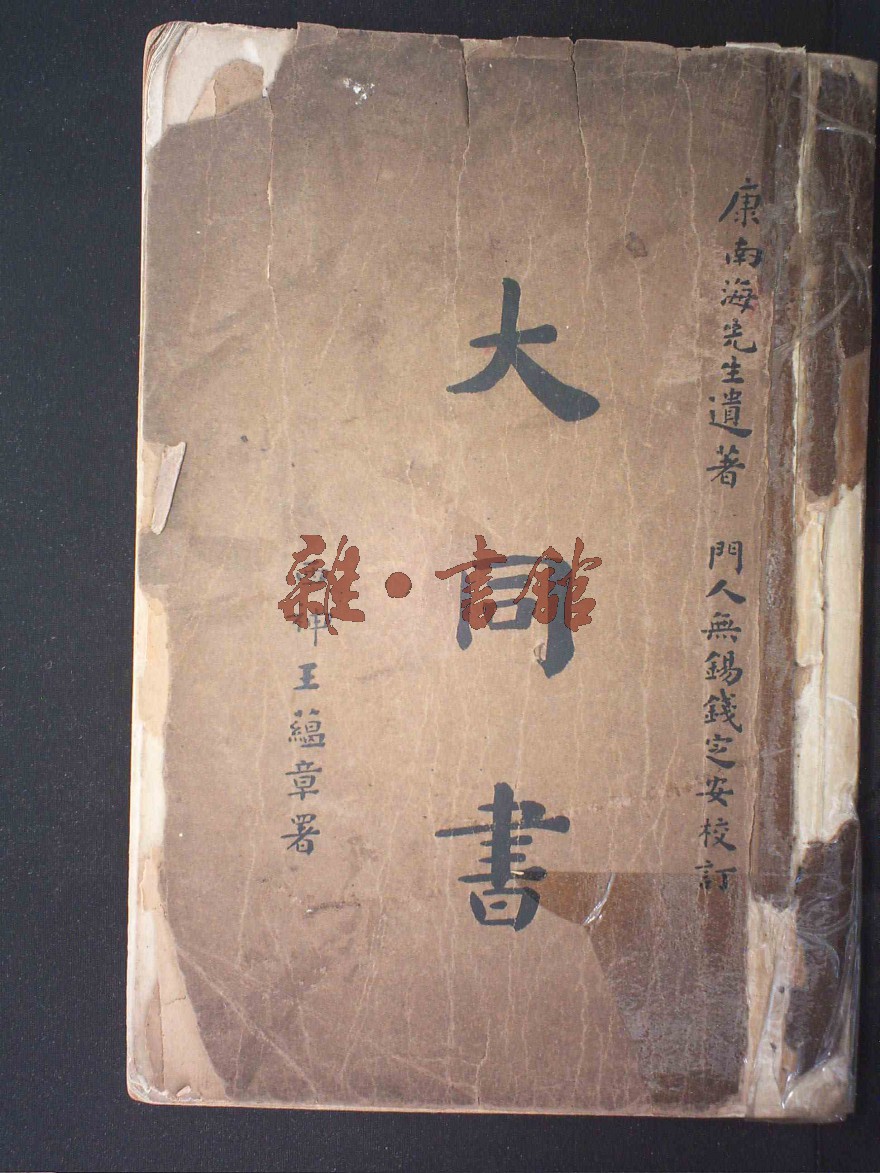 康南海先生遺著 門人無錫錢定安校訂
大同書
王蘊章署
雜·書館